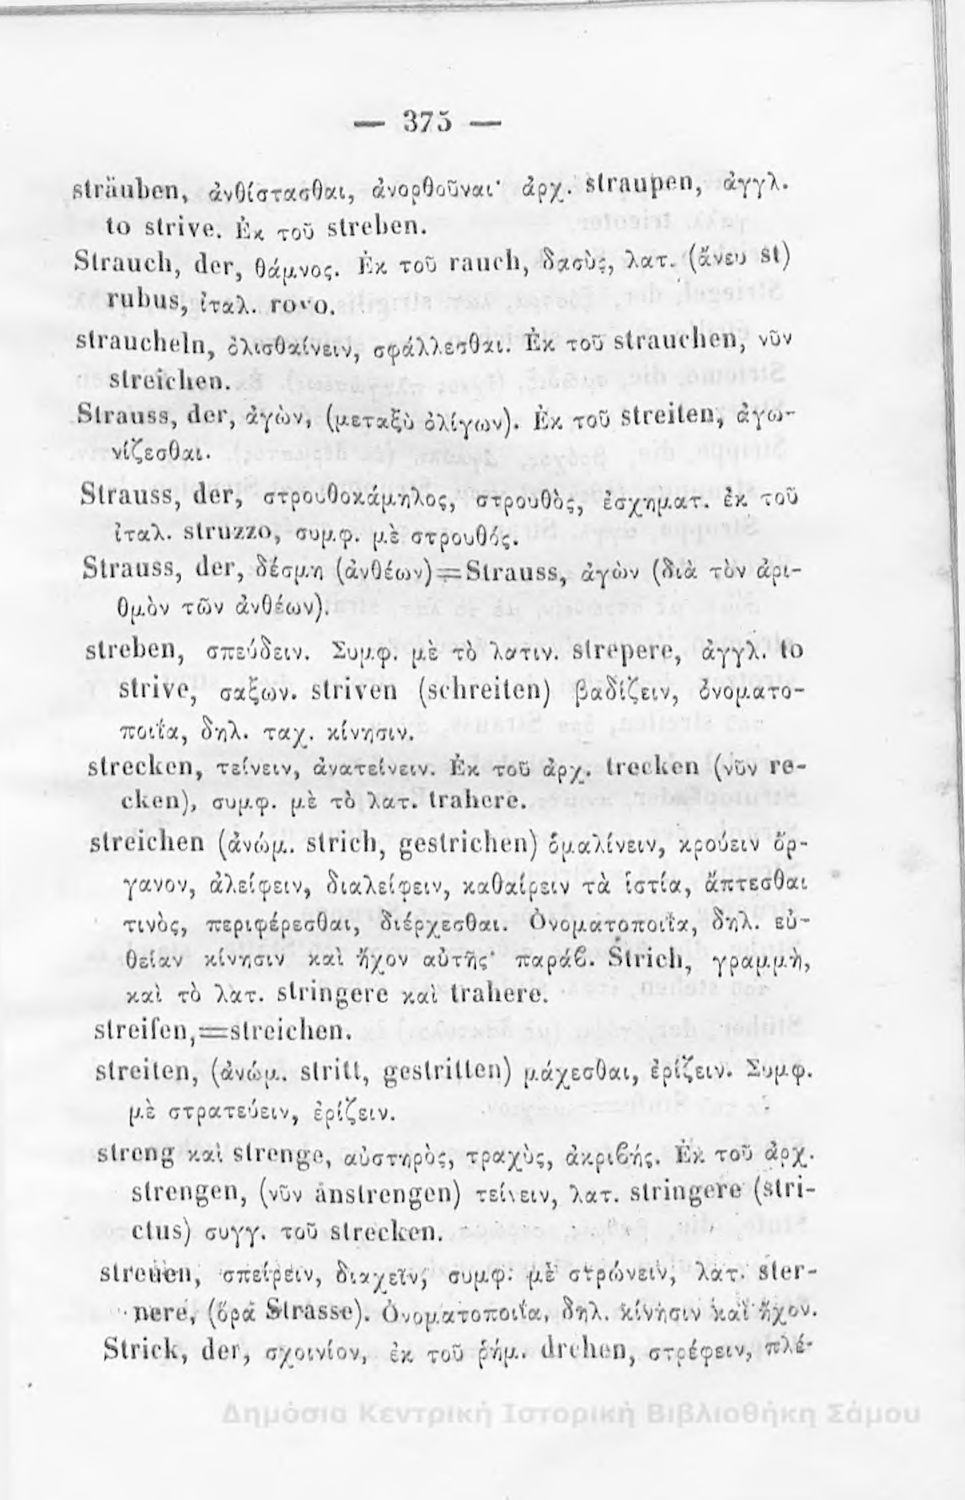 — 375 —
sträuben, ἀνθίστασθαι, ἀνορθοῦναι· ἀρχ. straupen, ἀγγλ.
to strive. Ἐκ τοῦ streben.
Strauch, der, θάμνος. Ἐκ τοῦ rauch, δασὺς, λατ. (ἄνευ st)
rubus, ἰταλ. rovo.
straucheln, ὀλισθαίνειν, σφάλλεσθαι. Ἐκ τοῦ strauchen, νῦν
streichen.
Strauss, der, ἀγὼν, (μεταξὺ ὀλίγων). Ἐκ τοῦ streiten, ἀγω-
νίζεσθαι.
Strauss, der, στρουθοκάμηλος, στρουθὸς, ἐσχηματ. ἐκ τοῦ
ἰταλ. struzzo, συμφ. μὲ στρουθός.
Strauss, der, δέσμη (ἀνθέων)=Strauss, ἀγὼν (διὰ τὸν ἀρι-
θμὸν τῶν ἀνθέων).
streben, σπεύδειν. Συμφ. μὲ τὸ λατιν. strepere, ἀγγλ. to
strive, σαξων. striven (schreiten) βαδίζειν, ὀνοματο-
ποιΐα, δηλ. ταχ. κίνησιν.
strecken, τείνειν, ἀνατείνειν. Ἐκ τοῦ ἀρχ. trecken (νῦν re-
cken), συμφ. μὲ τὸ λατ. trahere.
streichen (ἀνώμ. strich, gestrichen) ὁμαλίνειν, κρούειν ὄρ-
γανον, ἀλείφειν, διαλείφειν, καθαίρειν τὰ ἱστία, ἅπτεσθαι
τινὸς, περιφέρεσθαι, διέρχεσθαι. Ὀνοματοποιΐα, δηλ. εὐ-
θεῖαν κίνησιν καὶ ἦχον αὐτῆς· παράβ. Strich, γραμμὴ,
καὶ τὸ λατ. stringere καὶ trahere.
streifen,=streichen.
streiten, (ἀνώμ. stritt, gestritten) μάχεσθαι, ἐρίζειν. Συμφ.
μὲ στρατεύειν, ἐρίζειν.
streng καὶ strenge, αὐστηρὸς, τραχὺς, ἀκριβής. Ἐκ τοῦ ἀρχ.
strengen, (νῦν anstrengen) τείνειν, λατ. stringere (stri-
ctus) συγγ. τοῦ strecken.
streuen, σπείρειν, διαχεῖν, συμφ. μὲ στρώνειν, λατ. ster-
nere, (ὅρα Strasse). Ὀνοματοποιΐα, δηλ. κίνησιν καὶ ἦχον.
Strick, der, σχοινίον, ἐκ τοῦ ῥήμ. drehen, στρέφειν, πλέ-
Δημόσια Κεντρική Ιστορική Βιβλιοθήκη Σάμου